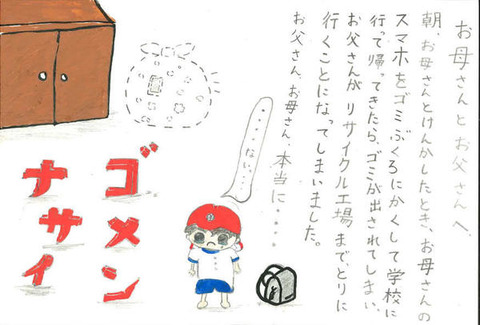 お母さんとお父さんへ、
朝、お母さんとけんかしたとき、お母さんの
スマホをゴミぶくろにかくして学校に
行って帰ってきたら、ゴミが出されてしまい、
お父さんがリサイクル工場まで、とりに
行くことになってしまいました。
お父さん、お母さん、本当に・・・・
・・・・ない、・・・
ゴメン
ナサイ